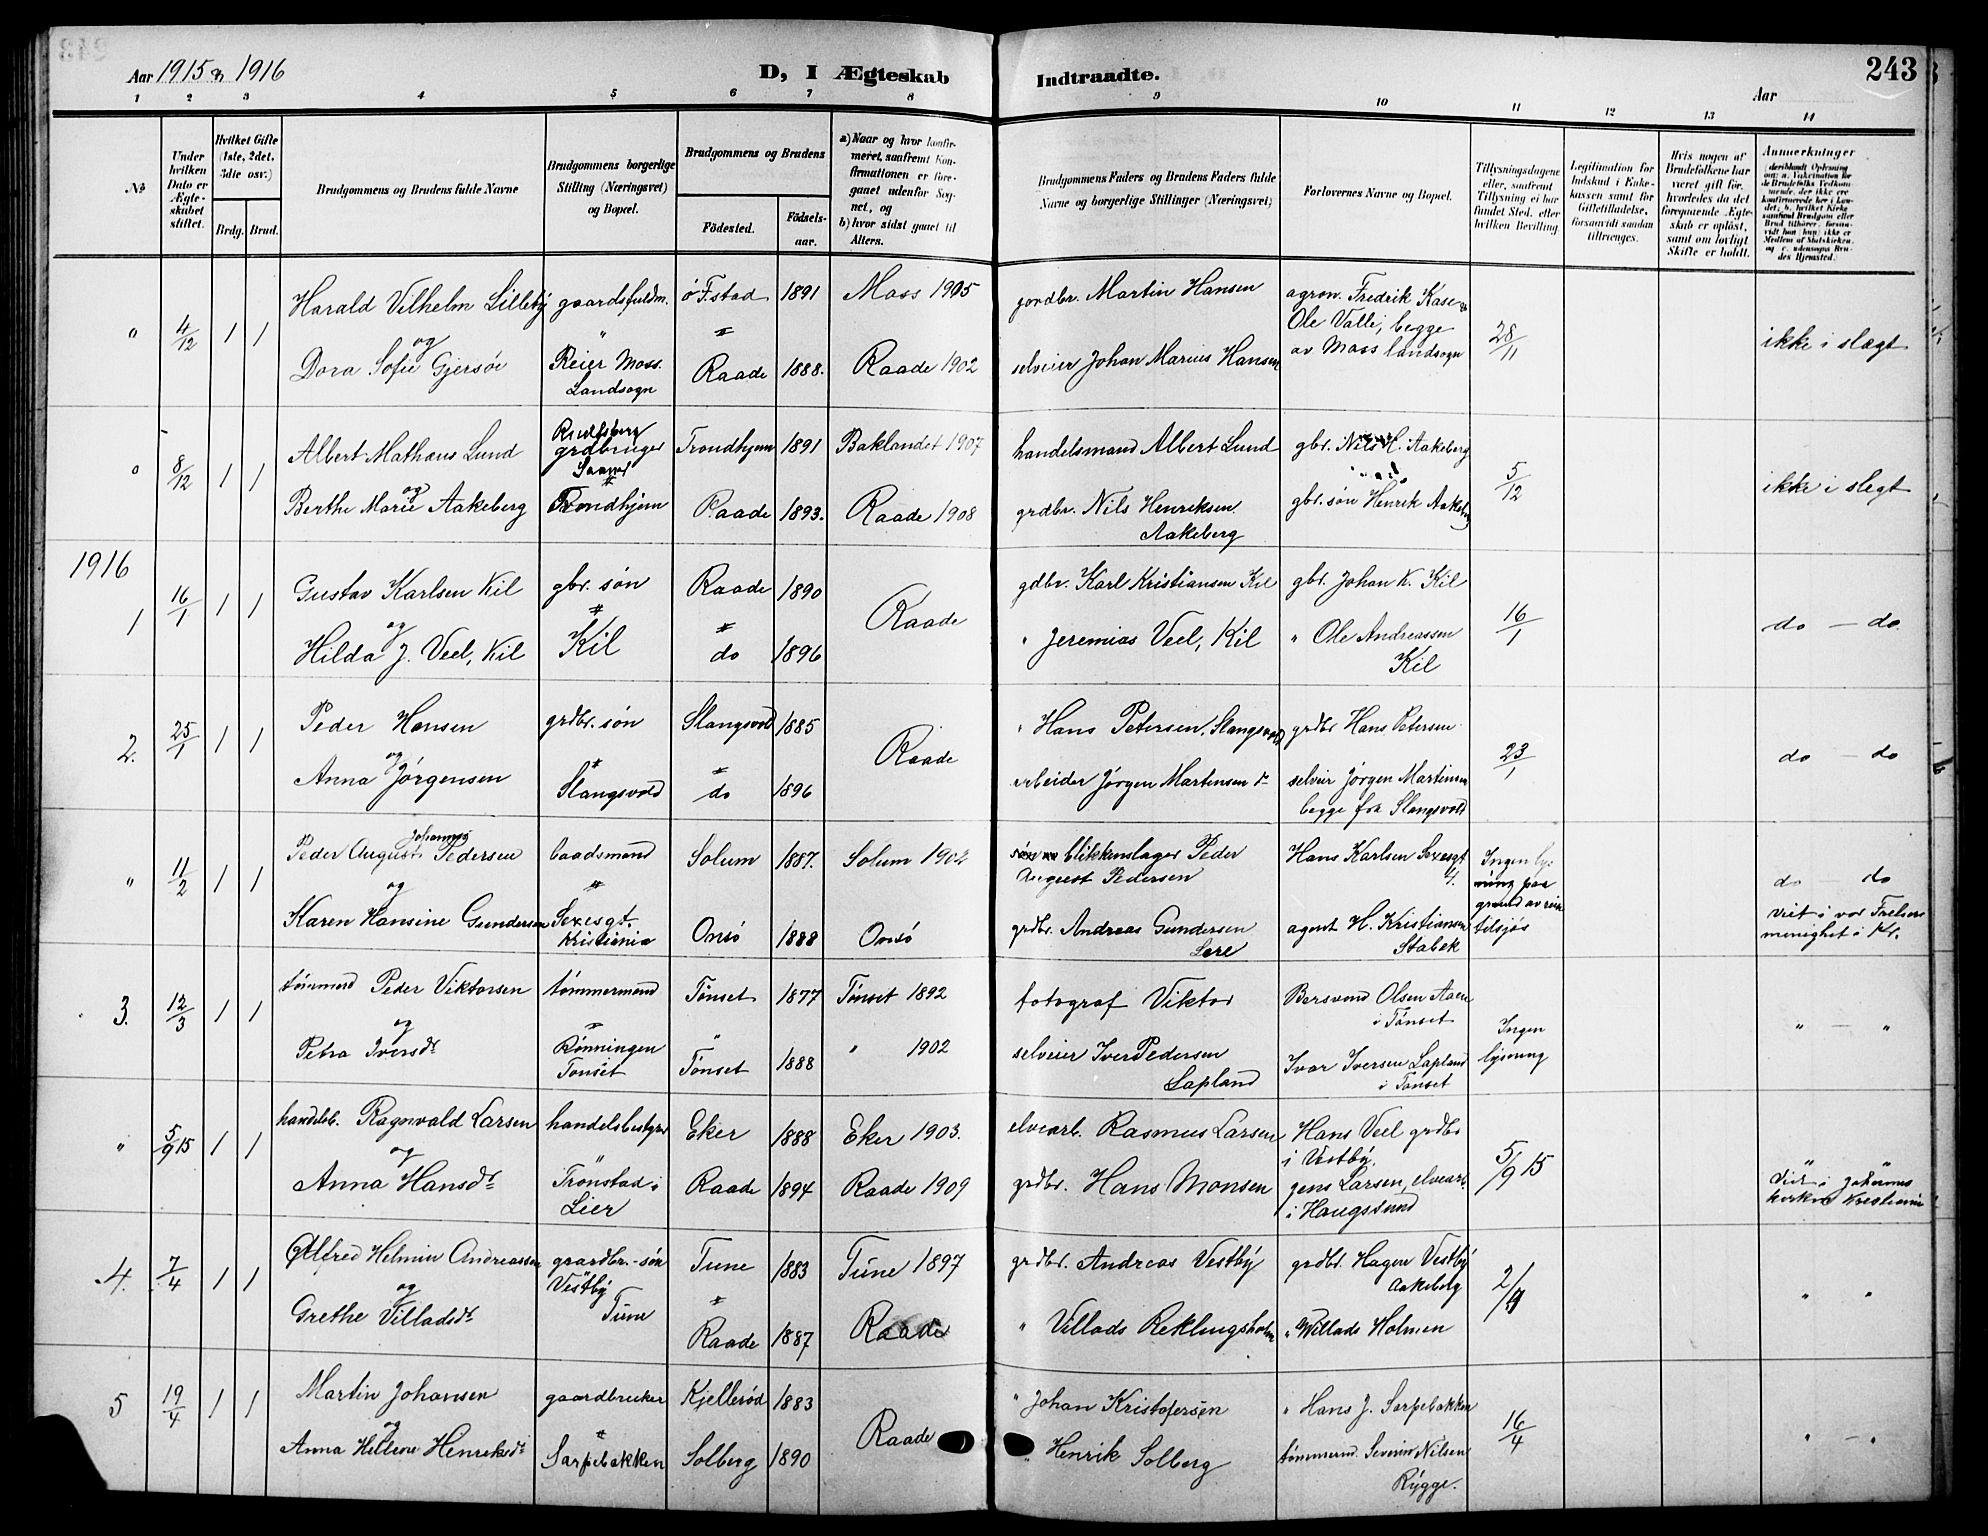 Aar 1915 & 1916
D, I Ægteskab Indtraadte.
Aar
243
1 2 3 4 5 6 7 8 9 10 11 12 13 14
No
Under hvilken Dato er Ægteskabet stiftet.
Hvilket Gifte (1ste, 2det, 3die osv.)
Brdg. Brud.
Brudgommens og Brudens fulde Navne
Brudgommens borgerlige Stilling (Næringsvei) og Bopæl.
Brudgommens og Brudens
Födested.
Födselsaar.
a) Naar og hvor konfirmeret, saafremt Konfirmationen er foregaaet udenfor Sognet, og
b) hvor sidst gaaet til Alters.
Brudgommens Faders og Brudens Faders fulde Navne og borgerlige Stillinger (Næringsvei)
Forlovernes Navne og Bopæl.
Tillysningsdagene eller, saafremt Tillysning ei har fundet Sted, efter hvilken Bevilling
Legitimation for Indskud i Enkekassen samt for Giftetilladelse, forsaavidt saadan tiltrænges.
Hvis nogen af Brudefolkene har været gift för, hvorledes da det foregaaende Ægteskab er oplöst, samt om lovligt Skifte er holdt.
Anmærkninger
" 4/12 1 1 Harald Vilhelm Lilleby gaardsfuldm. ö F.stad 1891 Moss 1905 jordbr. Martin Hansen agron. Fredrik Kase &
Ole Valli, begge
og " 28/11 ikke i slægt
Dora Sofie Gjersøe Reier Moss. Raade 1888. Raade 1902 selveier Johan Marius Hansen av Moss landsogn
Landsogn
" 8/12 1 1 Albert Mathæus Lund grdbruger Trondhjem 1891 Baklandet 1907 handelsmand Albert Lund gbr. Nils H. Aakeberg
og 5/12 ikke i slegt
Berthe Marie Aakeberg Trondhjem Raade 1893. Raade 1908 grdbr. Nils Henriksen gbr. søn Henrik Aakeberg
Aakeberg
1916
1 16/1 1 1 Gustav Karlsen Kil gbr. søn Raade 1890 Raade gdbr. Karl Kristiansen Kil gbr. Johan K. Kil
og 16/1 do — do.
Hilda J. Veel, Kil Kil do 1896 " Jeremias Veel, Kil " Ole Andreassen
Kil
2. 25/1 1 1 Peder Hansen grdbr. søn Slangsvold 1885 Raade " Hans Petersen, Slangsvold grdbr Hans Petersen
og 23/1 do — do
Anna Jørgensen Slangsvold do 1896 arbeider Jørgen Martinsen selveir Jørgen Martinsen
begge fra Slangsvold
" 11/2 1 1 Peder August Johannes Pedersen baadsmand Solum 1887. Solum 1902 blikkenslager Peder August Pedersen Hans Karlsen Sexesgt 4. Ingen lysning paa grund av reise tilsjøs
og do do
Karen Hansine Gundersen Sexesgt. Kristiania Onsø 1888 Onsø grdbr. Andreas Gundersen agent H. Kristiansen Stabek viet i vor Frelsers menighet i Kr.
3. 12/3 1 1 tømmermd Peder Viktorsen tømmermand Tönset 1877 Tönset 1892 fotograf Viktor Bersvend Olsen Aaen
i Tönset
og Ingen lysning " — "
Petra Iversdt Rönningen Tönset Tönset 1888 " 1902 selveier Iver Pedersen Lapland Ivar Iversen Lapland
i Tönset
" 5/9 15 1 1 handelsb. Ragnvald Larsen handelsbestyrer Eker 1888 Eker 1903. elvearb. Rasmus Larsen Hans Veel grdbr
i Vestby.
og 5/9 15
Anna Hansdt Trönstad i Lier Raade 1894 Raade 1909 grdbr. Hans Monsen Jens Larsen, elvearb. i Haugssund Viet i Johannes kirken Kristiania
4. 7/4 1 1 Alfred Helmin Andreassen gaardbr.-søn Tune 1883 Tune 1897 grdbr. Andreas Vestby grdbr. Hagen Vestby
Aakeberg
og Vestby 2/4 " "
Grethe Villadsdt Tune Raade 1887 Raade " Villads Reklingsholm " Willads Holmen
5 19/4 1 1 Martin Johansen gaardbruker Kjellerød 1883 Raade " Johan Kristofersen " Hans J. Sarpebakken
og 16/4 " — "
Anna Hellene Henriksdt Sarpebakken Solberg 1890 " Henrik Solberg tømmermd. Severin Nilsen
Rygge.